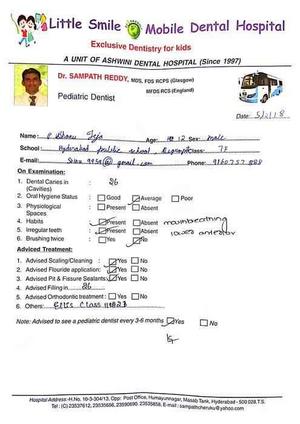 Little Smile Mobile Dental Hospital
Exclusive Dentistry for kids
A UNIT OF ASHWINI DENTAL HOSPITAL (Since 1997)
Dr. SAMPATH REDDY, MDS, FDS RCPS (Glasgow)
MFDS RCS (England)
Pediatric Dentist
Date: 5/2/18
Name: Teja Age: 12 Sex: male
School: Hyderabad public school, Class: 7F
E-mail: @gmail.com Phone:
On Examination:
1. Dental Caries in 26
(Cavities)
2. Oral Hygiene Status Good Average Poor
3. Physiological Present Absent
Spaces
4. Habits Present Absent mouthbreathing
5. Irregular teeth Present Absent lower anterior
6. Brushing twice Yes No
Adviced Treatment:
1. Advised Scaling/Cleaning : Yes No
2. Advised Flouride application: Yes No
3. Advised Pit & Fissure Sealants: Yes No
4. Advised Filling in 26
5. Advised Orthodontic treatment : Yes No
6. Others: Class
Note: Advised to see a pediatric dentist every 3-6 months Yes No
Hospital Address -H.No. 10-3-304/13, Opp: Post Office, Humayunnagar, Masab Tank, Hyderabad - 500 028.T.S.
Tel : (C) 23537612, 23535656, 23590690 23535658, E-mail : sampathcheruku@yahoo.com